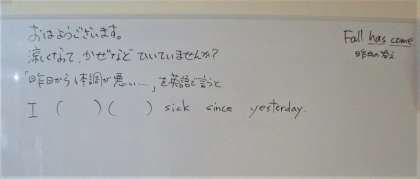 おはようございます。
涼しくなって、かぜなどひいていませんか？
「昨日から体調が悪い…」を英語で言うと
I (   ) (   ) sick since yesterday.
Fall has come
昨日の答え